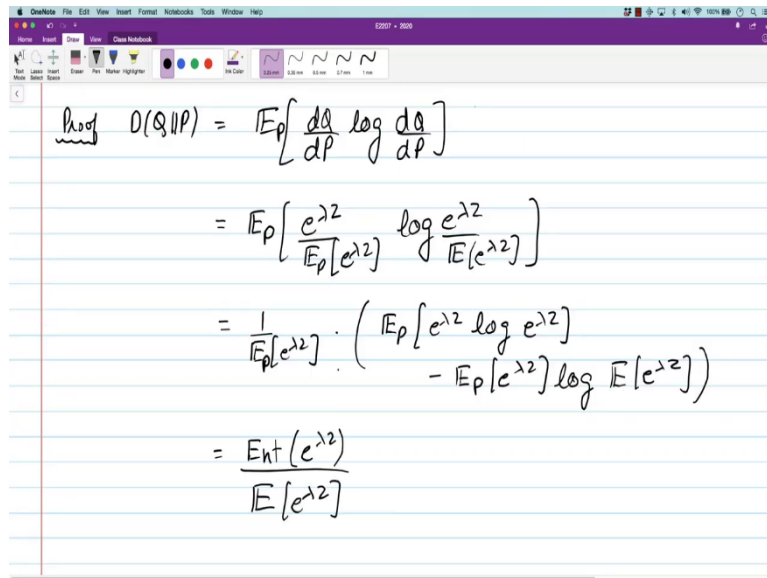 OneNote File Edit View Insert Format Notebooks Tools Window Help 100%
E2207 - 2020
Home Insert Draw View Class Notebook
Text Mode Lasso Select Insert Space Eraser Pen Marker Highlighter Ink Color 0.25 mm 0.35 mm 0.5 mm 0.7 mm 1 mm
Proof D(Q||P) = 𝔼_P[ dQ/dP log dQ/dP ]
= 𝔼_P[ e^{λZ} / 𝔼_P[e^{λZ}] log e^{λZ} / 𝔼[e^{λZ}] ]
= 1 / 𝔼_P[e^{λZ}] · ( 𝔼_P[e^{λZ} log e^{λZ}]
- 𝔼_P[e^{λZ}] log 𝔼[e^{λZ}] )
= Ent(e^{λZ}) / 𝔼[e^{λZ}]